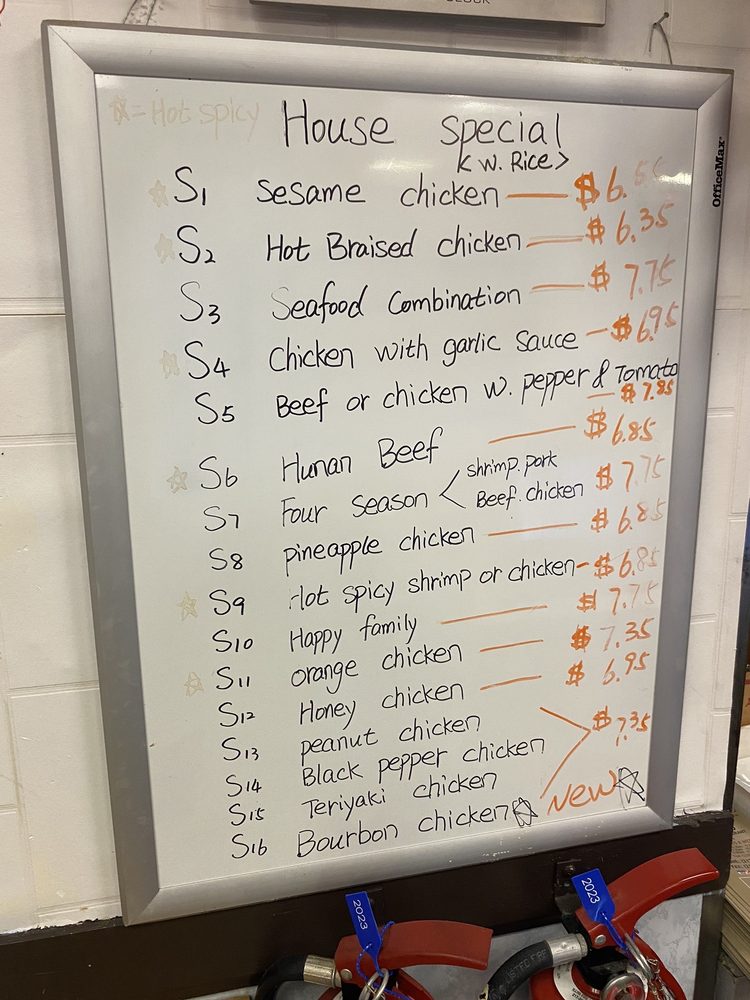 CLOCK
☆= Hot spicy
House special
< W. Rice >
OfficeMax
☆ S1 Sesame chicken — $6.5
☆ S2 Hot Braised chicken — $6.35
S3 Seafood Combination — $7.75
☆ S4 Chicken with garlic Sauce — $6.95
S5 Beef or chicken w. pepper & Tomato
— $7.85
☆ S6 Hunan Beef — $6.85
S7 Four Season < shrimp. pork
Beef. chicken $7.75
S8 pineapple chicken — $6.85
☆ S9 Hot spicy shrimp or chicken - $6.85
S10 Happy family — $7.75
☆ S11 orange chicken — $7.35
S12 Honey chicken — $6.95
S13 peanut chicken
S14 Black pepper chicken $7.35
S15 Teriyaki chicken
S16 Bourbon chicken ☆ New ☆
2023
2023